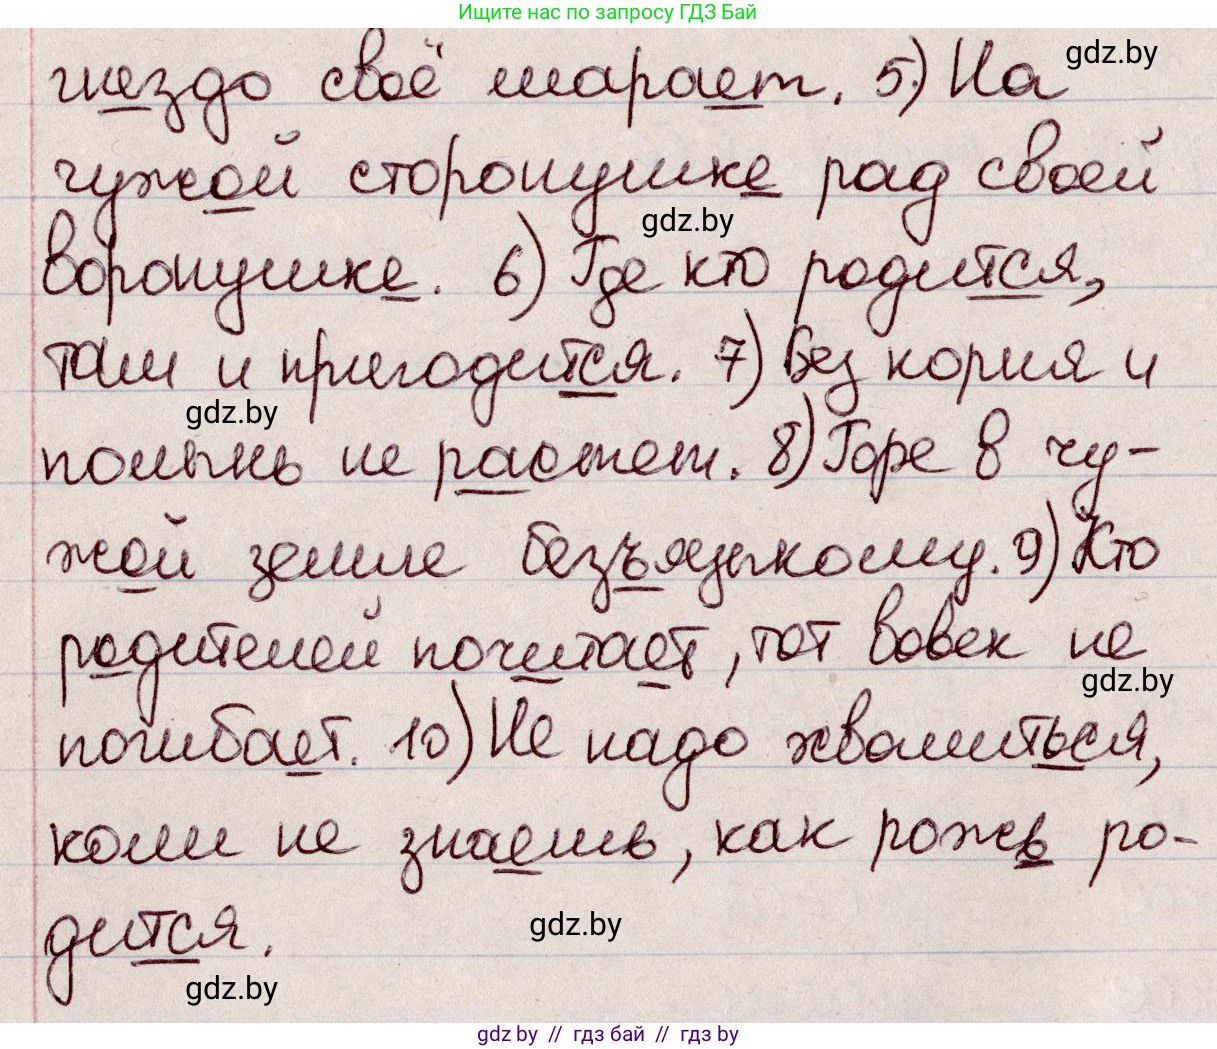 Ищите нас по запросу ГДЗ Бай
gdz.by
гнездо своё марает. 5) На
чужой сторонушке рад своей
gdz.by
воронушке. 6) Где кто родится,
там и пригодится. 7) Без корня и
gdz.by
полынь не растет. 8) Горе в чу-
жой земле безъязыкому. 9) Кто
родителей почитает, тот вовек не
gdz.by
погибает. 10) Не надо хвалиться,
коли не знаешь, как рожь ро-
дится.
gdz.by
gdz.by
gdz by // гдз бай // гдз by